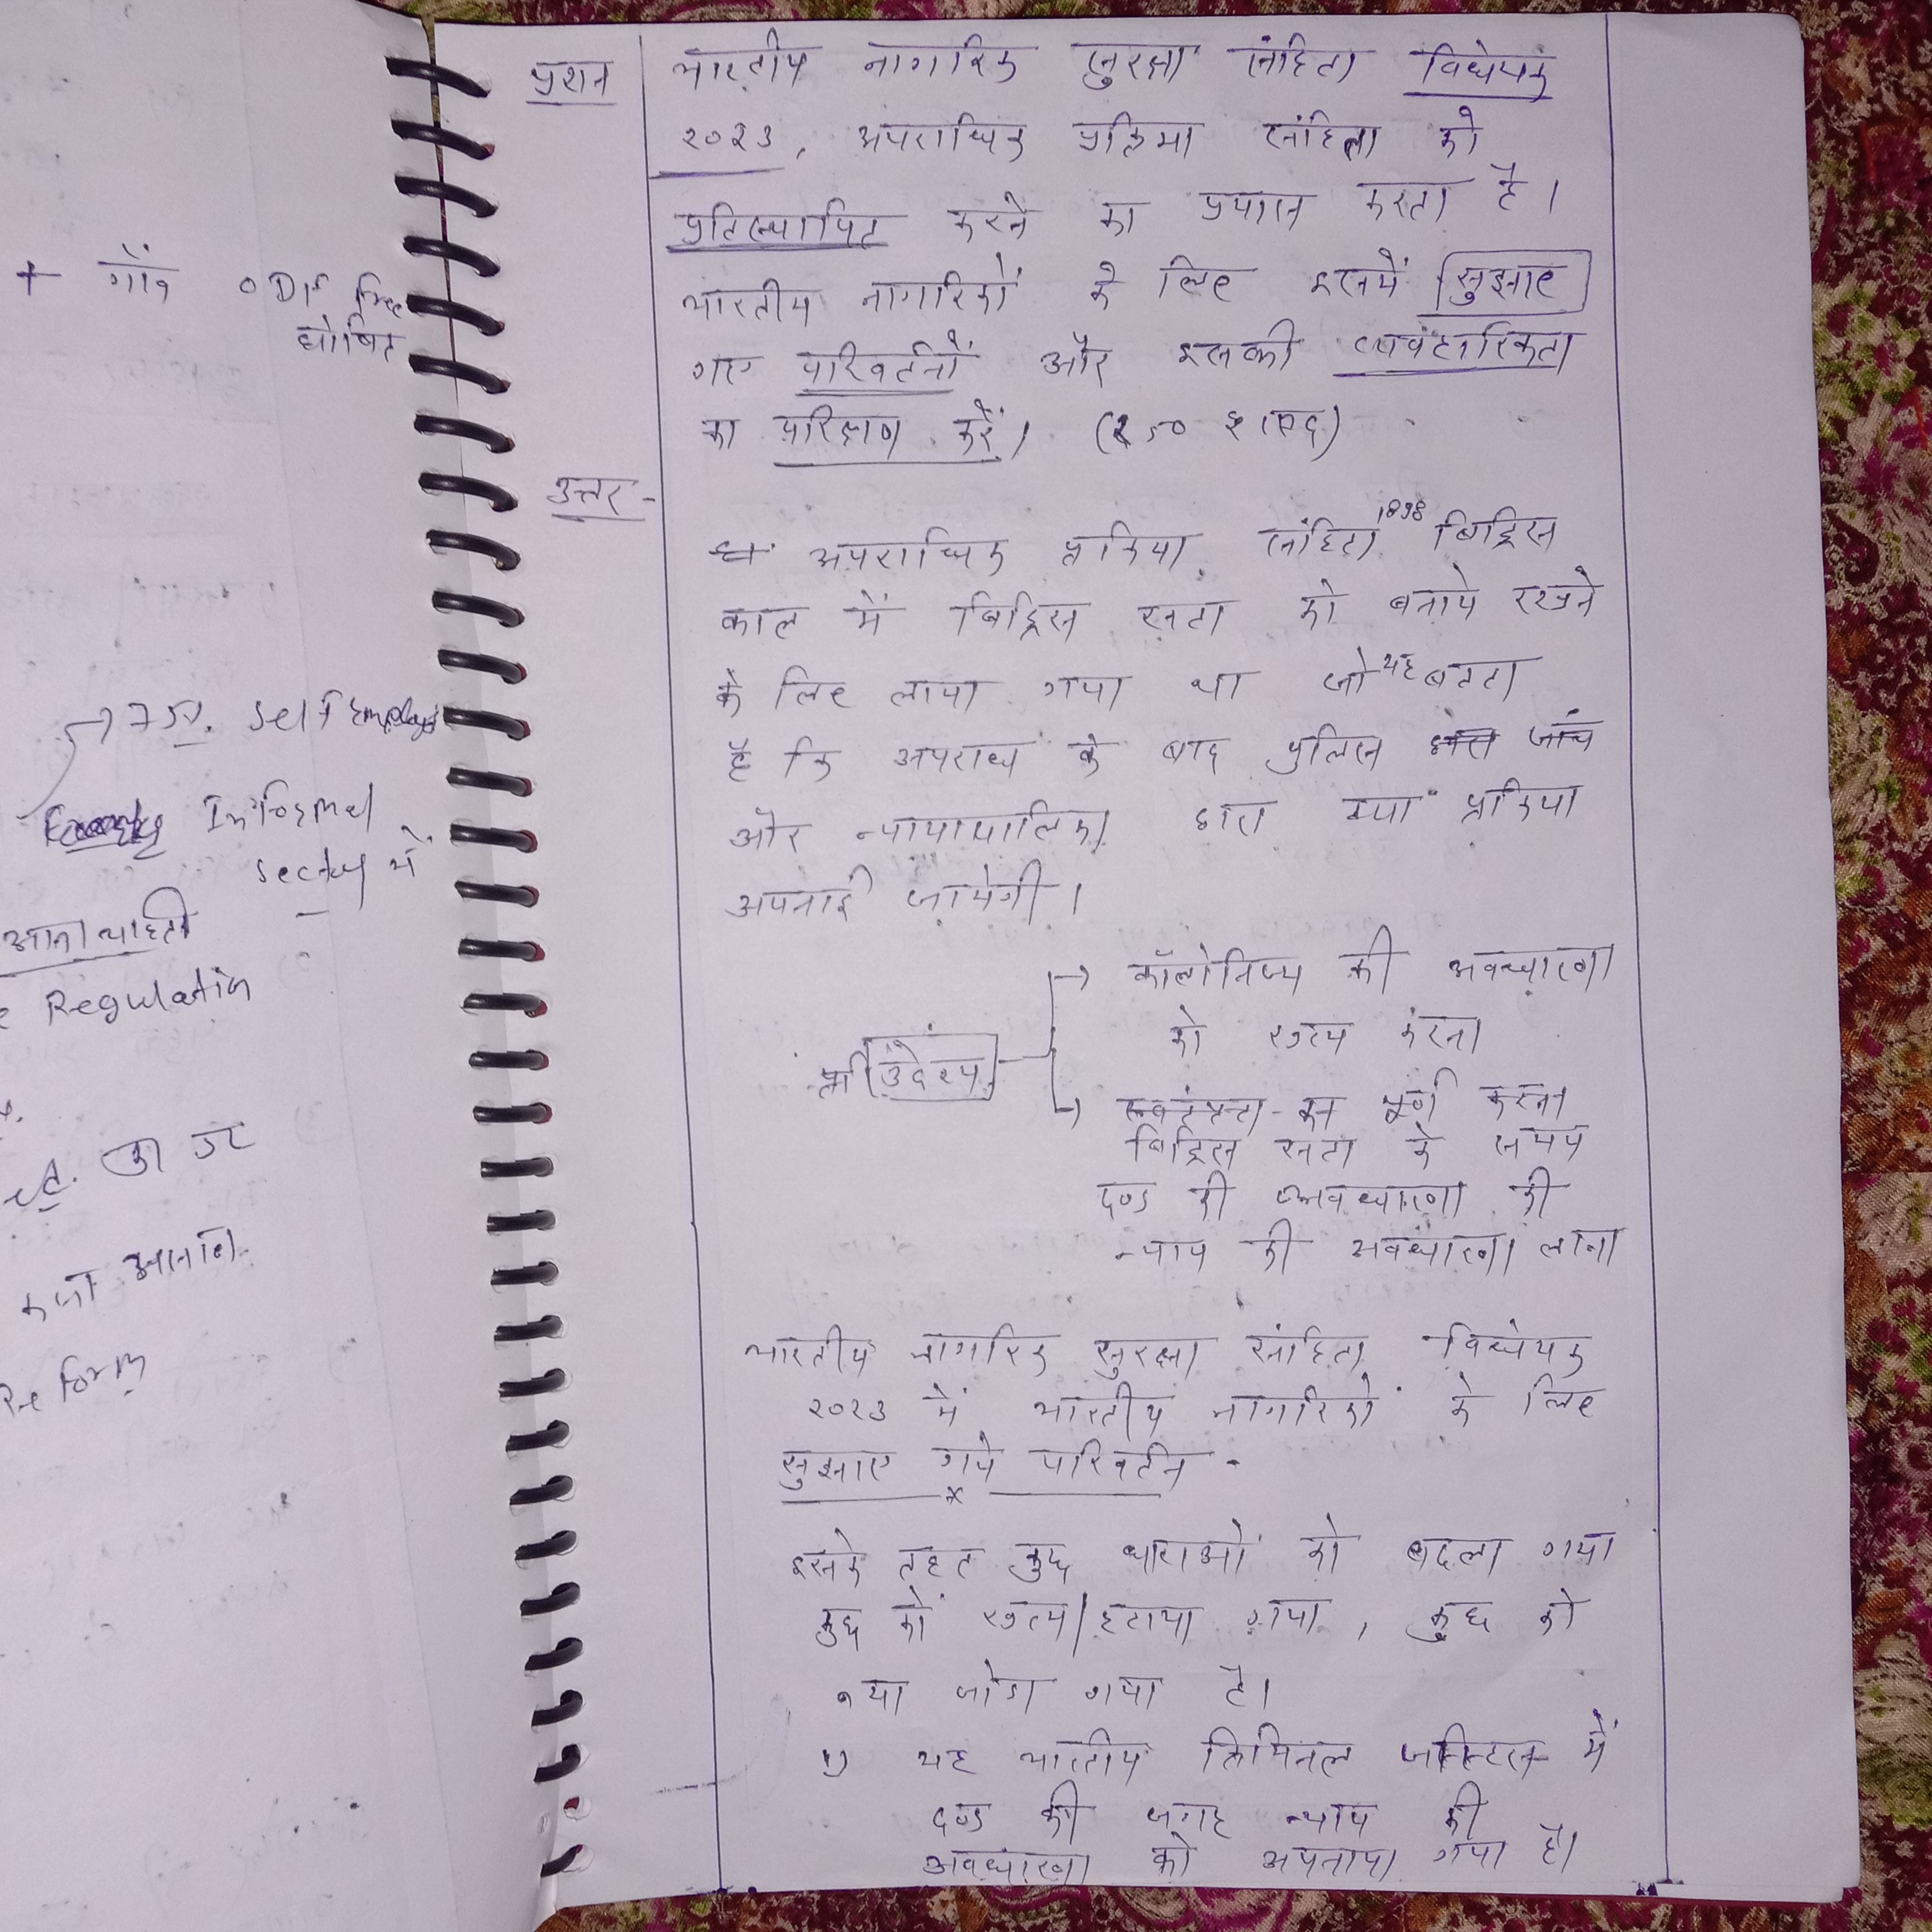 + गाँव ODF free
घोषित
→ 75%. Self Employed
Informal
sector में
Regulation
Reform
प्रशन
भारतीय नागरिक सुरक्षा संहिता विधेयक
२०२३, अपराधिक प्रक्रिया संहिता को
प्रतिस्थापित करने का प्रयास करता है।
भारतीय नागरिकों के लिए इसमें सुझाए
गए परिवर्तनों और इसकी व्यवहारिकता
का परिक्षण करें। (250 शब्द)
उत्तर -
अपराधिक प्रक्रिया संहिता 1898 ब्रिट्रिस
काल में ब्रिट्रिस सत्ता को बनाये रखने
के लिए लाया गया था जो यह बतता
है कि अपराध के बाद पुलिस जांच
और न्यायापालिका द्वारा क्या प्रक्रिया
अपनाई जायेगी।
उदेश्य
→ कॉलोनिज्म की अवधारणा
को खत्म करना
→ ब्रिट्रिस सत्ता के समय
दण्ड की अवधारणा की
न्याय की अवधारणा लाना
भारतीय नागरिक सुरक्षा संहिता विधेयक
२०२३ में भारतीय नागरिकों के लिए
सुझाए गये परिवर्तन -
इसके तहत कुछ धाराओं को बदला गया
कुछ को खत्म/हटाया गया, कुछ को
नया जोडा गया है।
1) यह भारतीय क्रिमिनल जस्टिस में
दण्ड की जगह न्याय की
अवधारणा को अपनाया गया है।